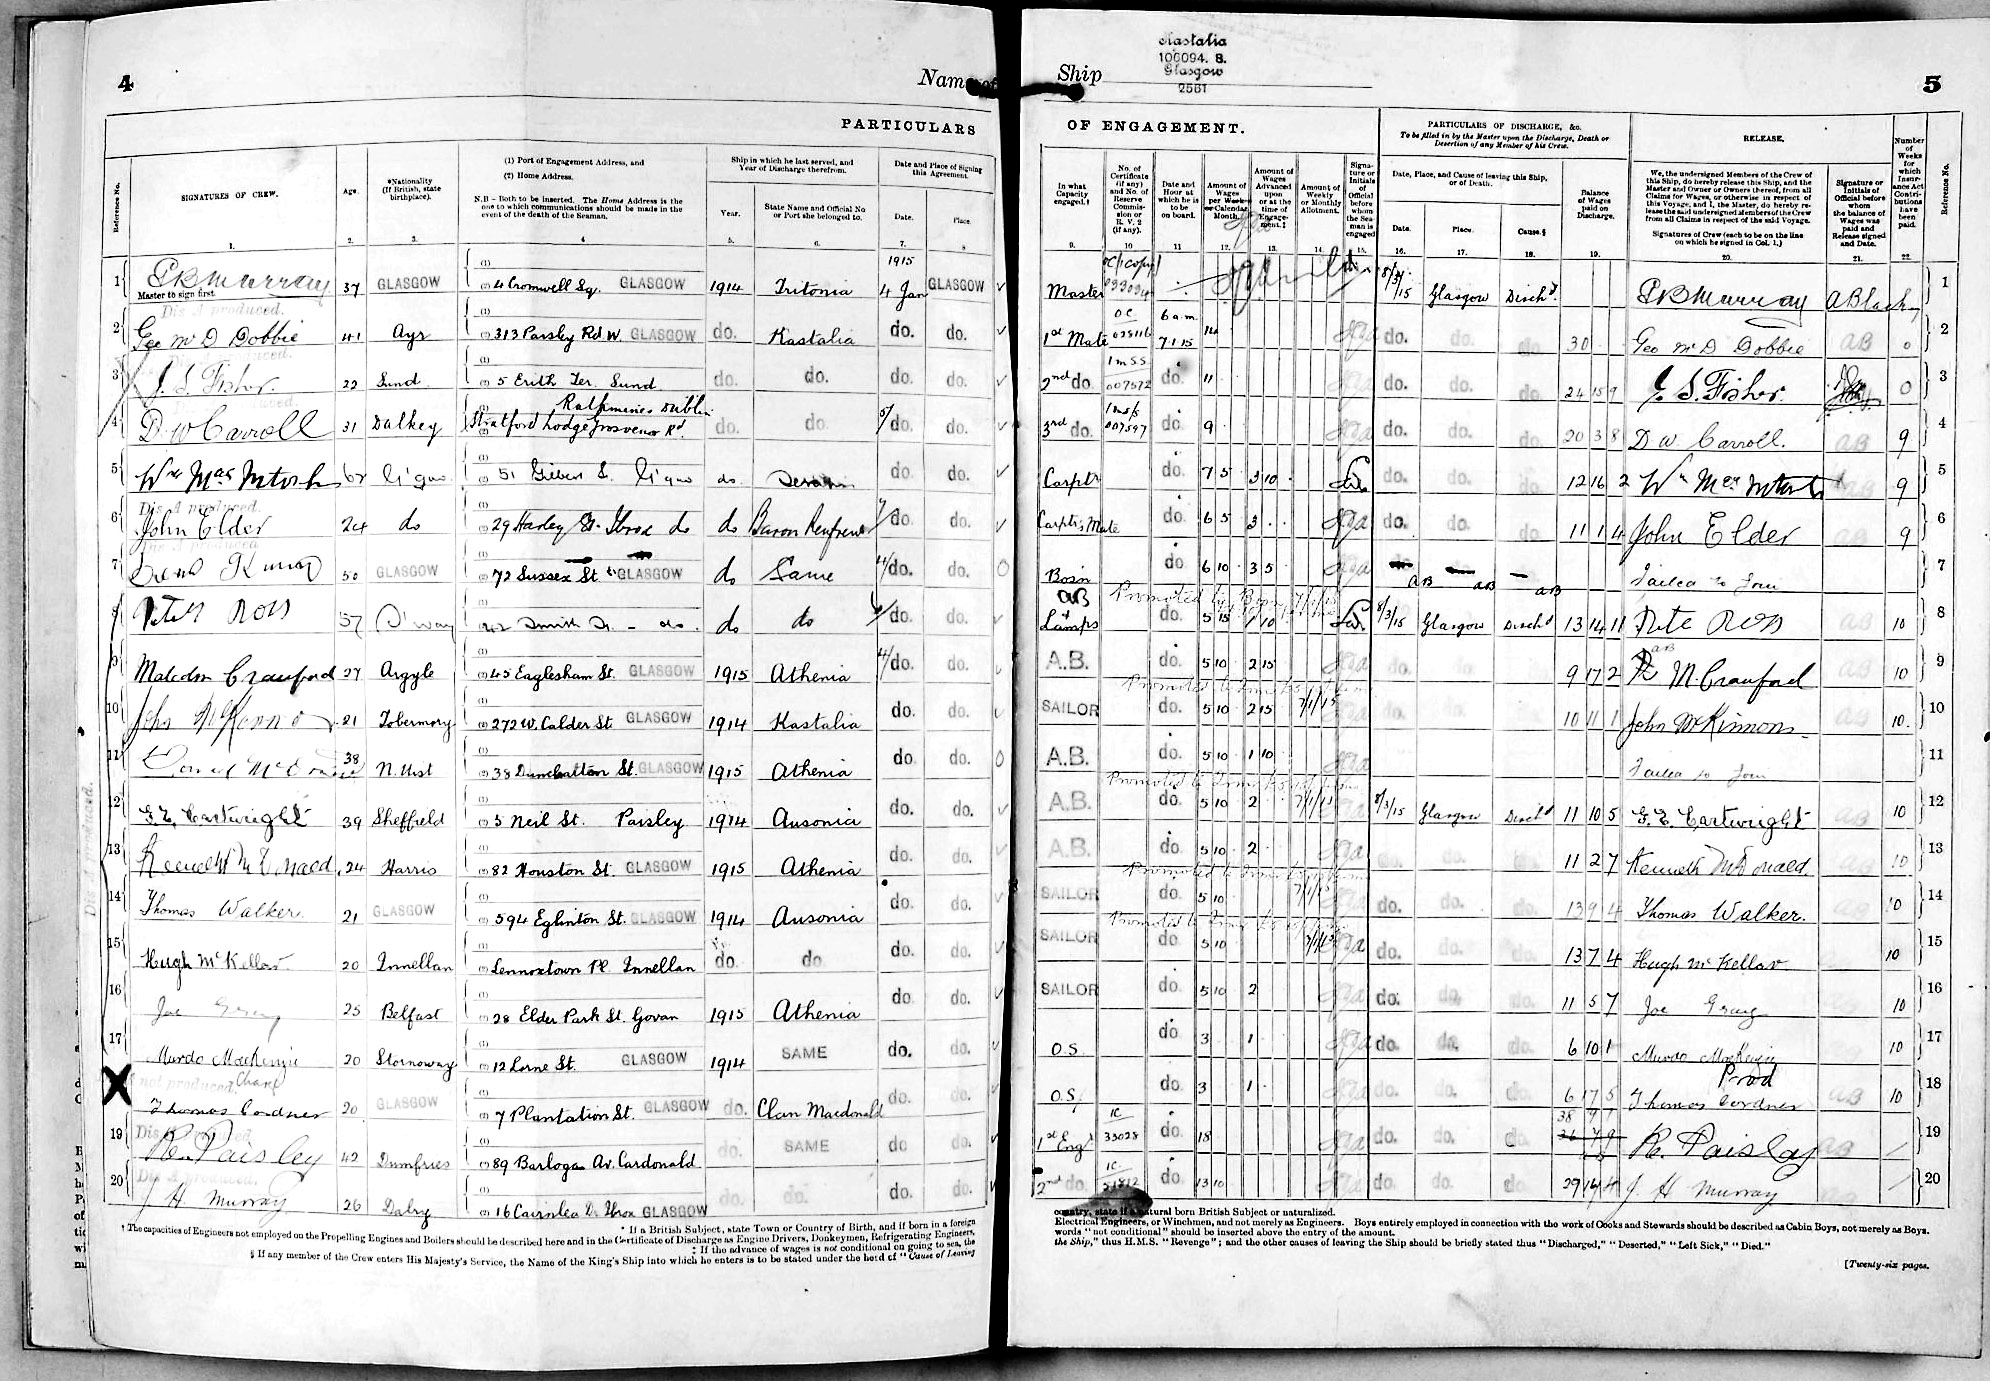 4
Name of
PARTICULARS
Reference No.
SIGNATURES OF CREW.
Age.
*Nationality
(If British, state
birthplace).
(1) Port of Engagement Address, and
(2) Home Address.
N.B – Both to be inserted. The Home Address is the
one to which communications should be made in the
event of the death of the Seaman.
Ship in which he last served, and
Year of Discharge therefrom.
Year.
State Name and Official No
or Port she belonged to.
Date and Place of Signing
this Agreement.
Date.
Place.
1. 2. 3. 4 5. 6. 7. 8
1915
1 P B Murray 37 GLASGOW 4 Cromwell Sq. GLASGOW 1914 Tritonia 4 Jan GLASGOW
Master to sign first.
Dis A produced.
2 Geo McD Dobbie 41 Ayr 313 Paisley Rd W. GLASGOW do. Kastalia do. do.
3 J. S. Fisher. 22 Sund 5 Erith Ter. Sund do. do. do. do.
Rathmines Dublin
4 D W Carroll 31 Dalkey Stratford Lodge Grosvenor Rd. do. do 5/do. do.
5 Wm MacIntosh 62 51 do. do. do.
Dis A produced.
6 John Elder 24 do 29 Harley St. Ibrox do do Baron Renfrew 7/do. do.
7 50 GLASGOW 72 Sussex St GLASGOW do Same 4/do. do.
8 Peter Ross 57 42 Smith St. do. do do do. do.
9 Malcolm Crawford 27 Argyle 45 Eaglesham St. GLASGOW 1915 Athenia 4/do. do.
10 John McKinnon 21 Tobermory 272 W. Calder St GLASGOW 1914 Kastalia do. do.
11 38 N. Uist 38 Dumbarton St. GLASGOW 1915 Athenia do do
12 G. E. Cartwright 39 Sheffield 5 Neil St. Paisley 1914 Ausonia do. do.
13 Kenneth McDonald 24 Harris 82 Houston St. GLASGOW 1915 Athenia do. do.
14 Thomas Walker. 21 GLASGOW 594 Eglinton St. GLASGOW 1914 Ausonia do. do.
15 Hugh McKellar 20 Innellan Lennoxtown Pl Innellan do. do do. do.
16 Joe 25 Belfast 28 Elder Park St. Govan 1915 Athenia do do.
17 Murdo MacKenzie 20 Stornoway 12 Lorne St. GLASGOW 1914 SAME do. do.
not produced.
Thomas Cordner 20 GLASGOW 7 Plantation St. GLASGOW do. Clan Macdonald do. do.
19 R. Paisley 42 Dumfries 89 Barloga Av. Cardonald do. SAME do do.
Dis A produced.
20 J H Murray 26 Dalry 16 Cairnlea Dr Ibrox GLASGOW do. do. do. do.
† The capacities of Engineers not employed on the Propelling Engines and Boilers should be described here and in the Certificate of Discharge as Engine Drivers, Donkeymen, Refrigerating Engineers,
* If a British Subject, state Town or Country of Birth, and if born in a foreign
‡ If the advance of wages is not conditional on going to sea, the
§ If any member of the Crew enters His Majesty's Service, the Name of the King's Ship into which he enters is to be stated under the head of "Cause of Leaving
Kastalia
106094. 8.
Glasgow
2561
Ship
5
OF ENGAGEMENT.
PARTICULARS OF DISCHARGE, &c.
To be filled in by the Master upon the Discharge, Death or
Desertion of any Member of his Crew.
RELEASE.
In what
Capacity
engaged.†
No. of
Certificate
(if any)
and No. of
Reserve
Commis-
sion or
R. V. 2
(if any).
Date and
Hour at
which he is
to be
on board.
Amount of
Wages
per Week
or Calendar
Month.
Amount of
Wages
Advanced
upon
or at the
time of
Engage-
ment.‡
Amount of
Weekly
or Monthly
Allotment.
Signa-
ture or
Initials
of
Official
before
whom
the Sea
man is
engaged
Date, Place, and Cause of leaving this Ship,
or of Death.
Date.
Place.
Cause.§
Balance
of Wages
paid on
Discharge.
We, the undersigned Members of the Crew of
this Ship, do hereby release this Ship, and the
Master and Owner or Owners thereof, from all
Claims for Wages, or otherwise in respect of
this Voyage, and I, the Master, do hereby re-
lease the said undersigned Members of the Crew
from all Claims in respect of the said Voyage.
Signatures of Crew (each to be on the line
on which he signed in Col. 1.)
Signature or
Initials of
Official before
whom
the balance of
Wages was
paid and
Release signed
and Date.
Number
of
Weeks
for
which
Insur-
ance Act
Contri-
butions
have
been
paid.
Reference No.
9. 10 11 12. 13. 14. 15. 16. 17. 18. 19. 20. 21. 22.
Master 8/3/15 Glasgow Disch'd. P B Murray A Black 1
1st Mate OC 038116 6 a.m. 7 1 15 14 do. do. do 30 Geo McD Dobbie AB 0 2
2nd do. 1 m SS 007572 do. 11 do. do. do 24 15 9 J. S. Fisher. 0 3
3rd do. 007597 do. 9 do. do. do. 20 3 8 D W. Carroll. AB 9 4
Carptr do. 7 5 3 10 do. do. do. 12 16 2 Wm MacIntosh AB 9 5
Carptr's Mate do. 6 5 3 do. do. do. 11 1 4 John Elder AB 9 6
Bosn do. 6 10 3 5 AB AB AB Failed to Join 7
AB + Lamps Promoted to Bosn 7/1/15 do. 5 15 1 10 8/3/15 Glasgow Disch'd 13 14 11 Pete Ross AB 10 8
A.B. do. 5 10 2 15 do. do. do. 9 17 2 M. Crawford AB 10 9
SAILOR do. 5 10 2 15 7/1/15 do. do. do. 10 11 1 John McKinnon. AB 10. 10
A.B. do. 5 10 1 10 Failed to Join 11
A.B. do. 5 10 2 7/1/15 8/3/15 Glasgow Disch'd 11 10 5 G. E. Cartwright AB 10 12
A.B. do. 5 10 2 do. do. do. 11 2 7 Kenneth McDonald. AB 10 13
SAILOR do. 5 10 7/1/15 do. do. do. 13 9 4 Thomas Walker. AB 10 14
SAILOR do. 5 10 7/1/15 do. do. do. 13 7 4 Hugh McKellar 10 15
SAILOR do. 5 10 2 do. do. do. 11 5 7 Joe AB 10 16
O.S. do. 3 1 do. do. do. 6 10 1 Murdo MacKenzie AB 10 17
O.S. do. 3 1 do. do. do. 6 17 5 Thomas Cordner AB 10 18
1st Engr 1C 33028 do. 18 do. do. R. Paisley AB 19
2nd do. 1C do. 13 10 do. do. do. 29 14 4 J H Murray 20
country, state if a natural born British Subject or naturalized.
Electrical Engineers, or Winchmen, and not merely as Engineers. Boys entirely employed in connection with the work of Cooks and Stewards should be described as Cabin Boys, not merely as Boys.
words "not conditional" should be inserted above the entry of the amount.
the Ship," thus H.M.S. "Revenge"; and the other causes of leaving the Ship should be briefly stated thus "Discharged," "Deserted," "Left Sick," "Died."
[Twenty-six pages.